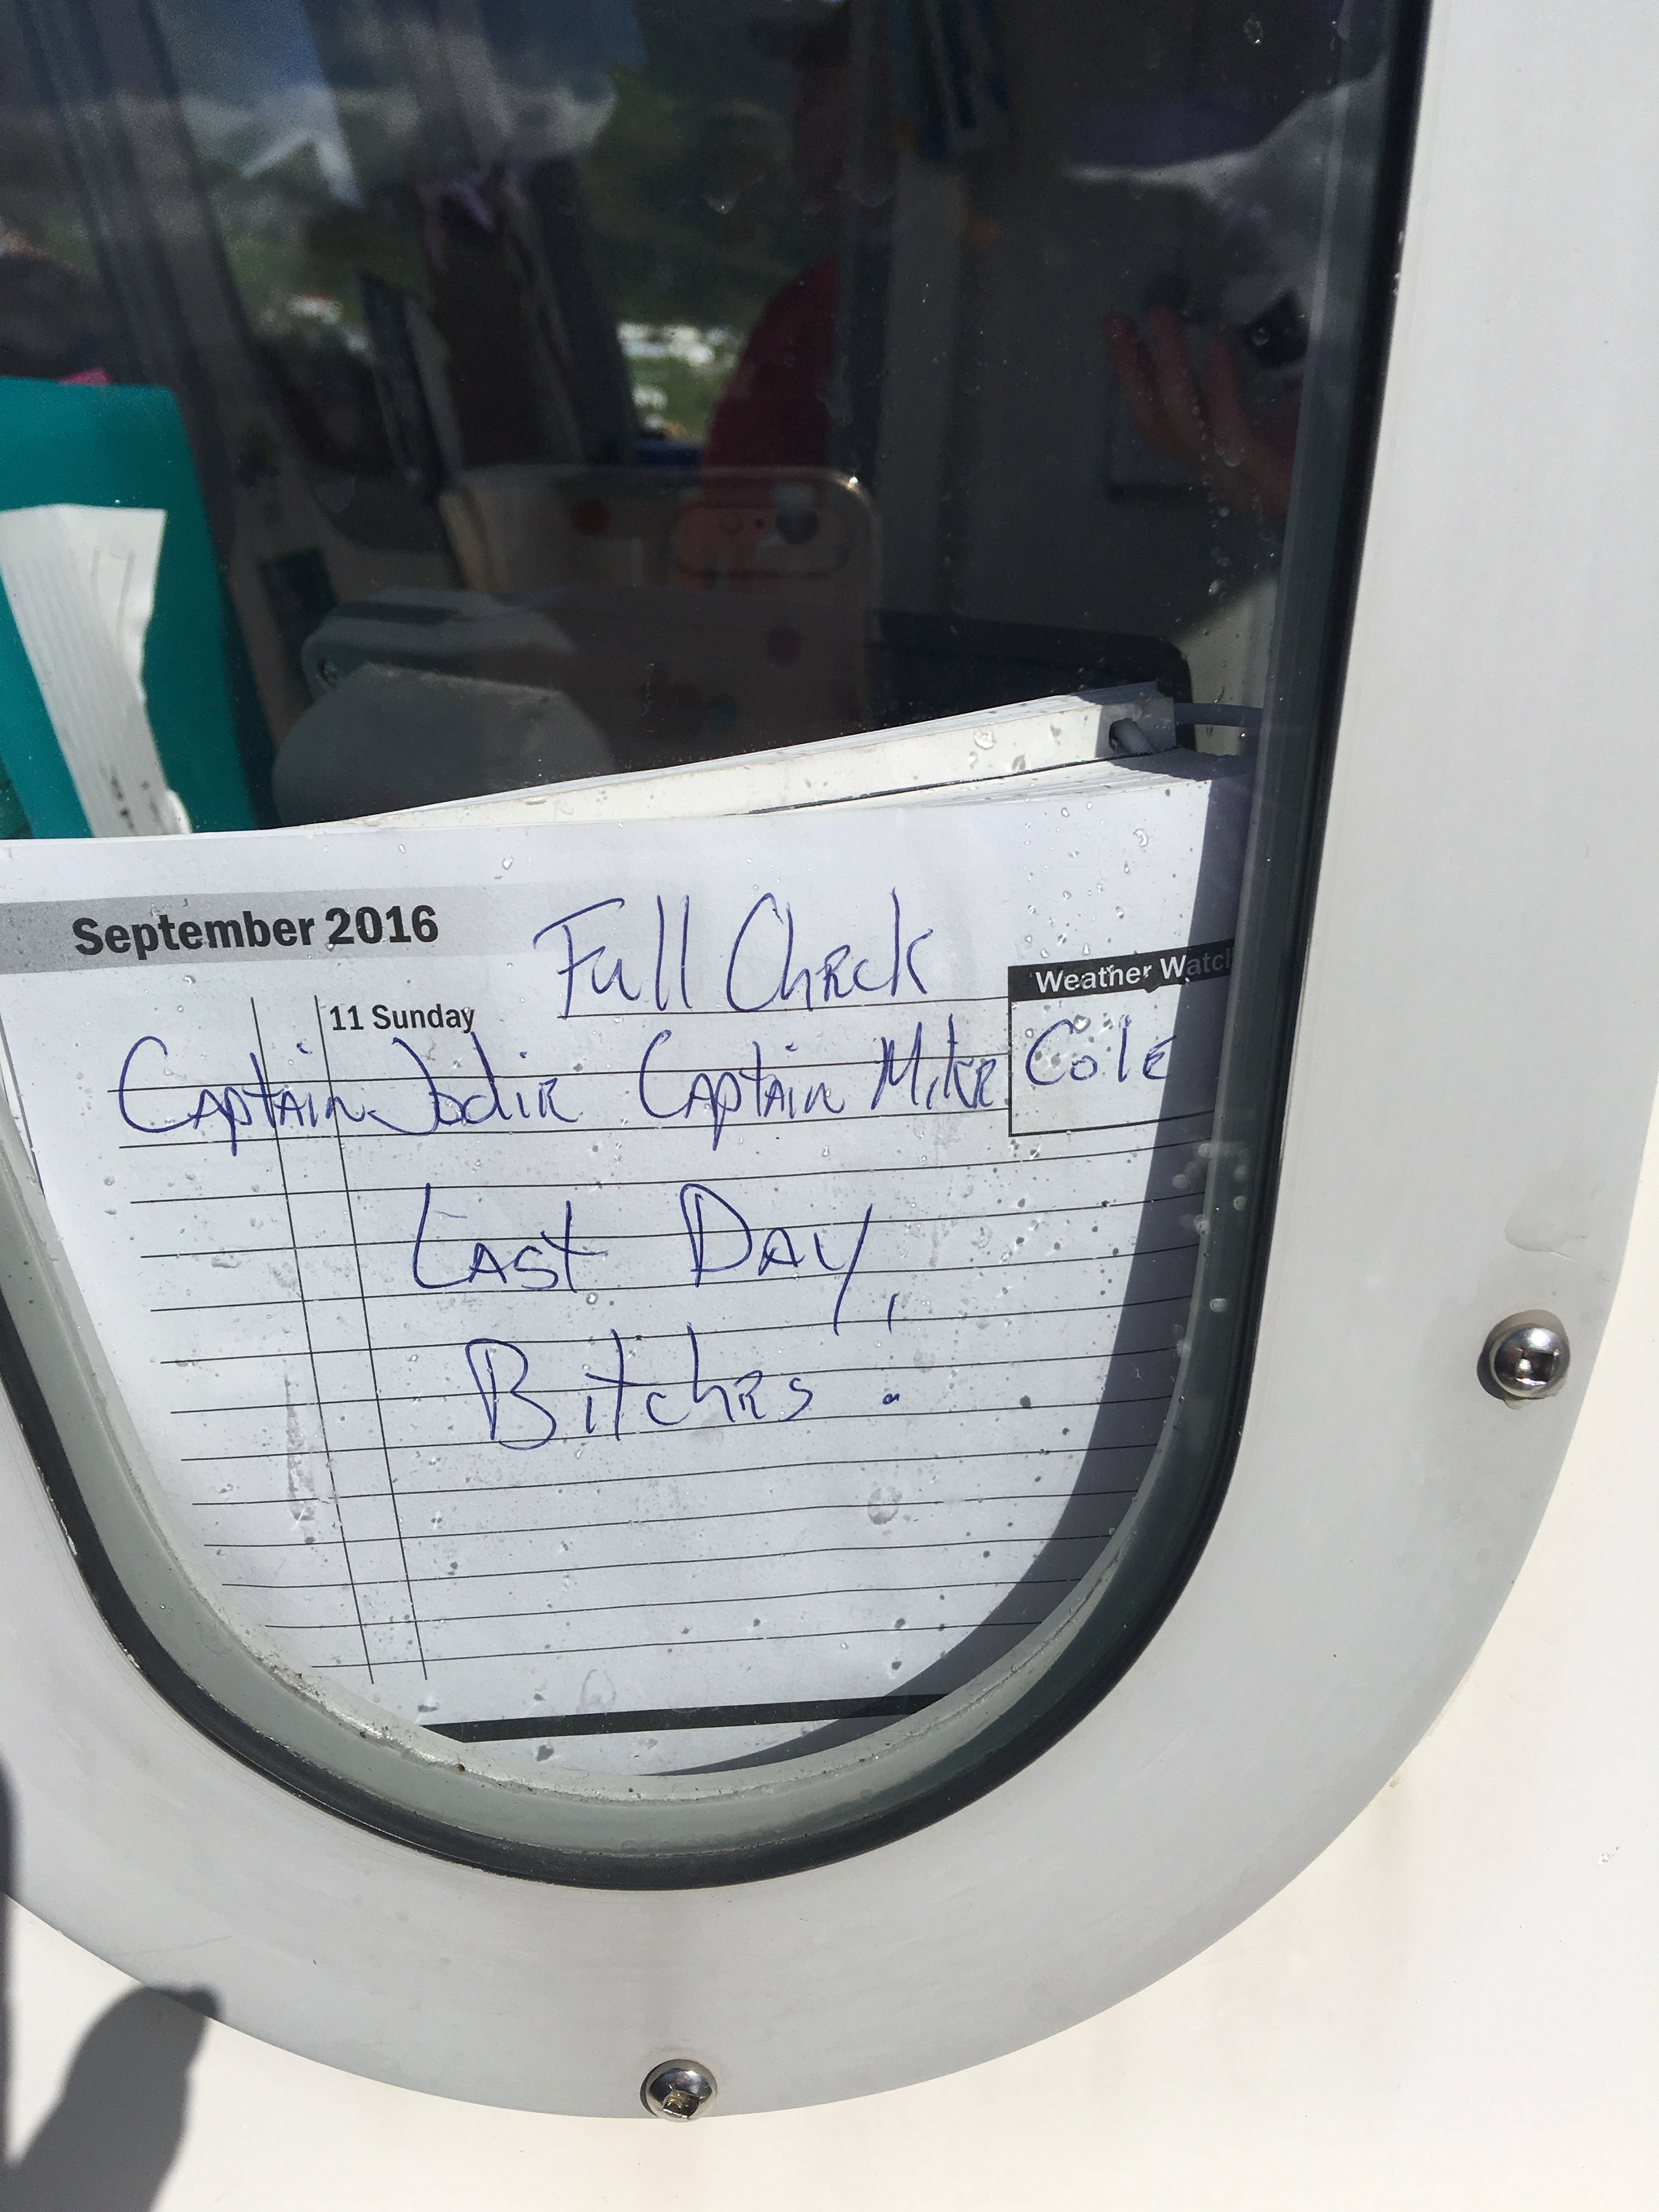 September 2016 Full Check
Weather Watch
11 Sunday
Captain Jodie Captain Mike Cole
Last Day,
Bitches.